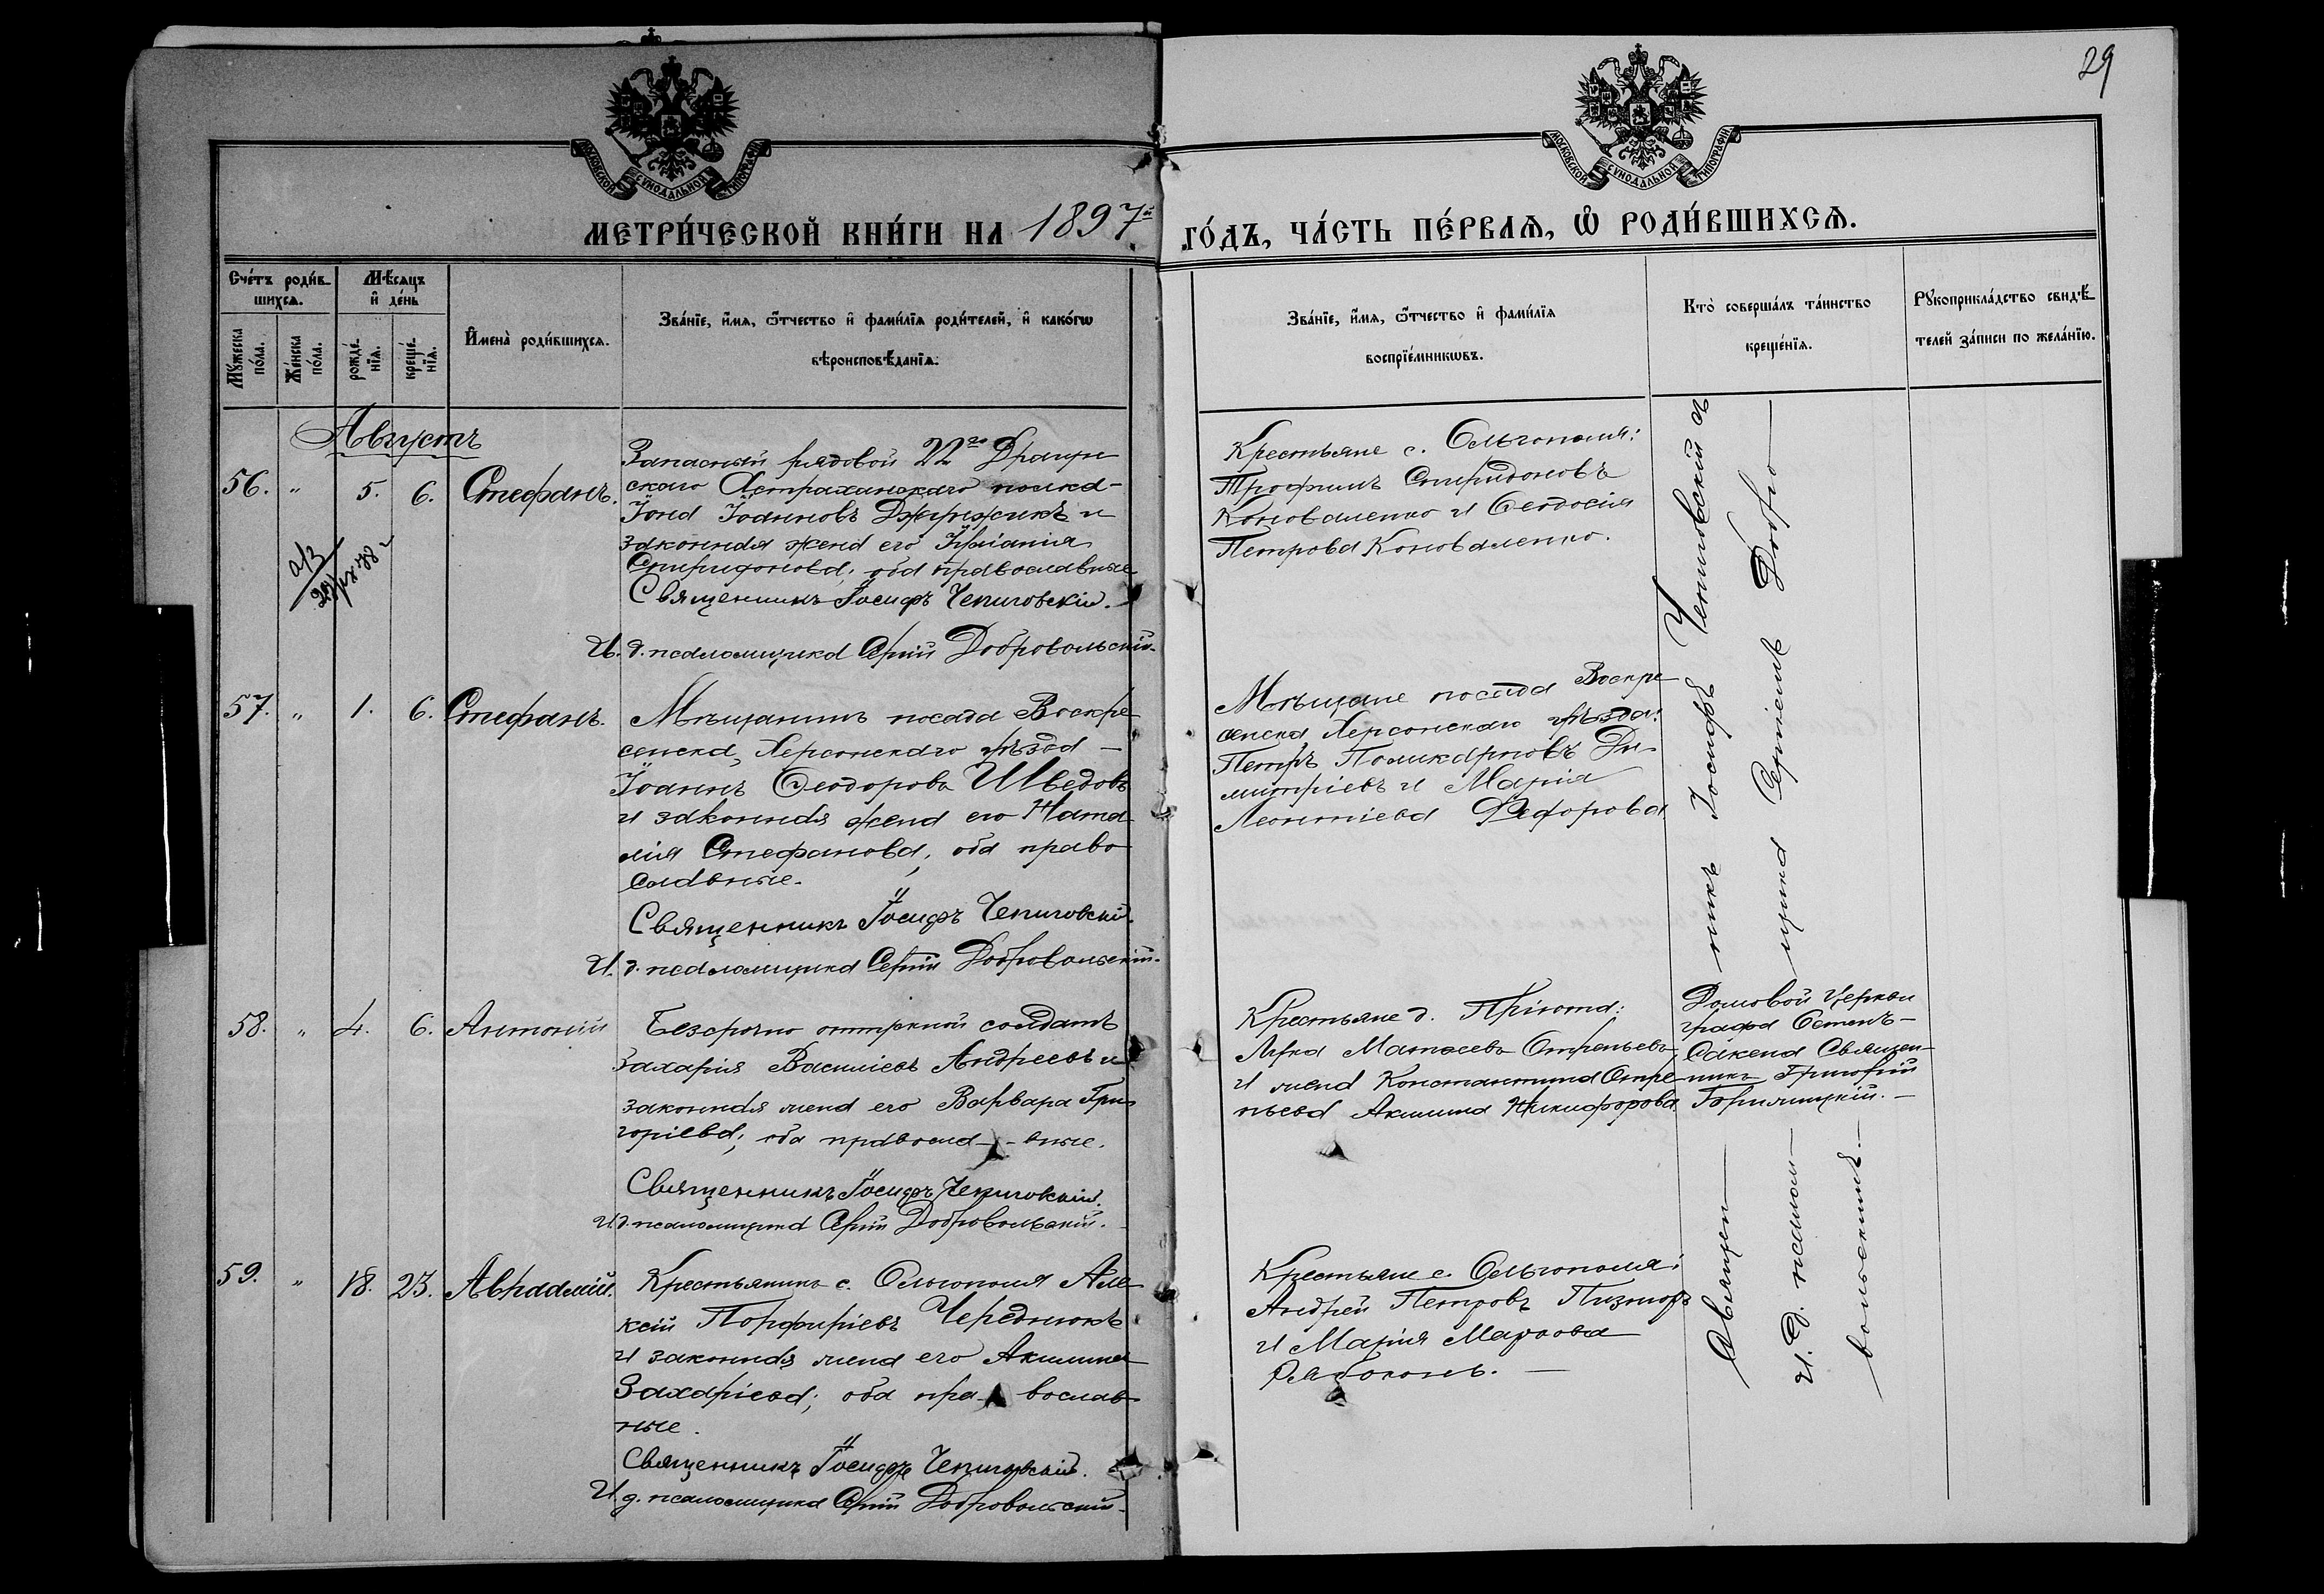 29
МОСКОВСКОЙ СѴНОДАЛЬНОЙ ТИПОГРАФІИ
МОСКОВСКОЙ СѴНОДАЛЬНОЙ ТИПОГРАФІИ
МЕТРИ́ЧЕСКОЙ КНИ́ГИ НА 1897й ГО́ДЪ, ЧА́СТЬ ПЕ́РВАѦ, Ѿ РОДИ́ВШИХСѦ.
Сче́тъ роди́в-
шихсѧ.
Мꙋ́жеска
по́ла.
Же́нска
по́ла.
Мѣ́сѧцъ
и҆ де́нь
рожде́-
нїѧ.
креще́-
нїѧ.
И҆мена̀ роди́вшихсѧ.
Зва́нїе, и҆́мѧ, ѻ҆́тчество и҆ фами́лїѧ роди́телей, и҆ како́гѡ
вѣроисповѣ́данїѧ.
Зва́нїе, и҆́мѧ, ѻ҆́тчество и҆ фами́лїѧ
воспрїе́мникѡвъ.
Кто̀ соверша́лъ та́инство
креще́нїѧ.
Рꙋкоприкла́дство свидѣ́-
телей за́писи по жела́нїю.
Августъ
56. " 5. 6. Стефанъ.
Запасный рядовой 22го Драгун
скаго Астраханскаго полка-
Іона Іоанновъ и
законная жена его
Спиридонова; оба православные
Священникъ Іосифъ Чепиговскій.
И. д. псаломщика Сергій Добровольскій.
Крестьяне с. Ольгополя:
Трофимъ Спиридоновъ
Коноваленко и Ѳеодосія
Петрова Коноваленко.
57. " 1. 6. Стефанъ.
Мѣщанинъ посада Воскре
сенска, Херсонскаго уѣзда —
Іоаннъ Ѳеодоровъ Шведовъ
и законная жена его Ната
лія Стефанова; оба право
славные.
Священникъ Іосифъ Чепиговскій.
И. д. псаломщика Сергій Добровольскій.
Мѣщане посада Воскре
сенска Херсонскаго уѣзда:
Петръ Поликарповъ Ди
митріевъ и Марія
Леонтіева Федорова
58. " 4. 6. Антоній
Безсрочно отпускной солдатъ
Захарія Василіевъ Андреевъ и
законная жена его Варвара Гри
горіева; оба правосла- - вные.
Священникъ Іосифъ Чепиговскій.
И. д. псаломщика Сергій Добровольскій.
Крестьяне д. Пріюта:
Лука Матѳеевъ Отрепьевъ,
и жена Константина Отре
пьева Акилина Никифорова
Домовой Церкви
графа Остенъ-
Сакена Священ-
никъ Григорій
59. " 18. 23. Авраамій.
Крестьянинъ с. Ольгополя Але
ксій Порфиріевъ Череднюкъ
и законная жена его Акилина
Захаріева; оба пра- вослав
ные.
Священникъ Іосифъ Чепиговскій.
И. д. псаломщика Сергій Добровольскій.
Крестьяне с. Ольгополя:
Андрей Петровъ
и Марія Маркова
Рябоконь. —
Священ— никъ Іосифъ Чепиговскій съ
И. д. псалом— щика Сергіемъ Добро—
вольскимъ.—